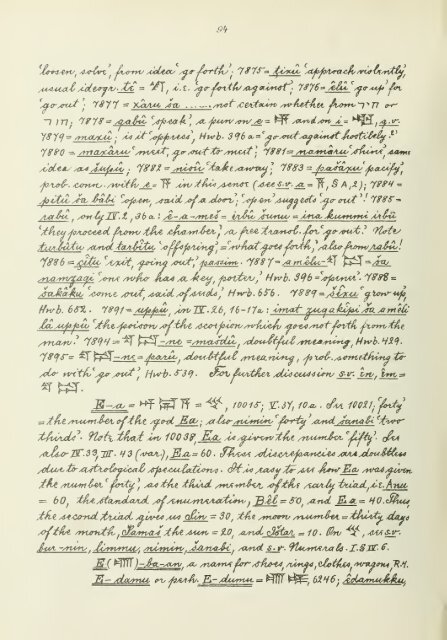 94
'loosen, solve', from idea 'go forth'; 7875 = ṭixû 'approach violently',
usual ideogr. tî = , i.e. 'go forth against'; 7876 = êlû 'go up' for
'go out'; 7877 = xâru ša ...... not certain whether from חיר or
חור; 7878 = qabû 'speak', a pun on e = and on i = , q.v.
7879 = maxû; is it 'oppress', Hwb. 396a = 'go out against hostilely'?
7880 = maxâru 'meet, go out to meet'; 7881 = namâru 'shine', same
idea as šupû; 7882 = nisû 'take away'; 7883 = pašâxu pacify,
prob. conn. with e = in this sense (see s.v. a = , § A, 2); 7884 =
pitû ša bâbi 'open, said of a door'; 'open' suggests 'go out'! 7885 =
rabû, only IV. 2, 36a: ê-a-meš = irbû šunu = ina kummi irbû
'they proceed from the chamber', a free transl. for 'go out'. Note
turbûtu and tarbîtu 'offspring' = 'what goes forth', also from rabû!
7886 = çîtu 'exit, going out', passim. 7887 = amêlu- = ša
namzaqi 'one who has a key, porter', Hwb. 396 = 'opener'. 7888 =
šakâku 'come out, said of seeds', Hwb. 656. 7889 = šîxu 'grow up',
Hwb. 652. 7891 = uppû, in IV. 26, 16-17a: imat zuqakîpi ša amêli
lâ uppû 'the poison of the scorpion which goes not forth from the
man.' 7894 = -ne = masdû, doubtful meaning, Hwb. 429.
7895 = -ne = parû, doubtful meaning, prob. something to
do with 'go out', Hwb. 539. For further discussion s.v. in, im =
E-a = = , 10015; V. 37, 10a. See 10021, 'forty'
= the number of the god Ea; also nimin 'forty' and šanabi 'two
thirds'. Note that in 10038, Ea is given the number 'fifty'. See
also IV. 33, III. 43 (var), Ea = 60. These discrepancies are doubtless
due to astrological speculations. It is easy to see how Ea was given
the number 'forty', as the third member of the early triad, i.e. Anu
= 60, the standard of enumeration, Bêl = 50, and Ea = 40. Thus,
the second triad gives us Sin = 30, the moon number = thirty days
of the month, Šamaš the sun = 20, and Ištar = 10. On , see s.v.
bur-nin, limmu, nimin, šanabi, and s.v. Numerals. I. § IV. 6.
E ( ) -ba-an, a name for shoes, rings, clothes, wagons, R.M.
E-damu or perh. E-dumu = , 6246; êdamukku,